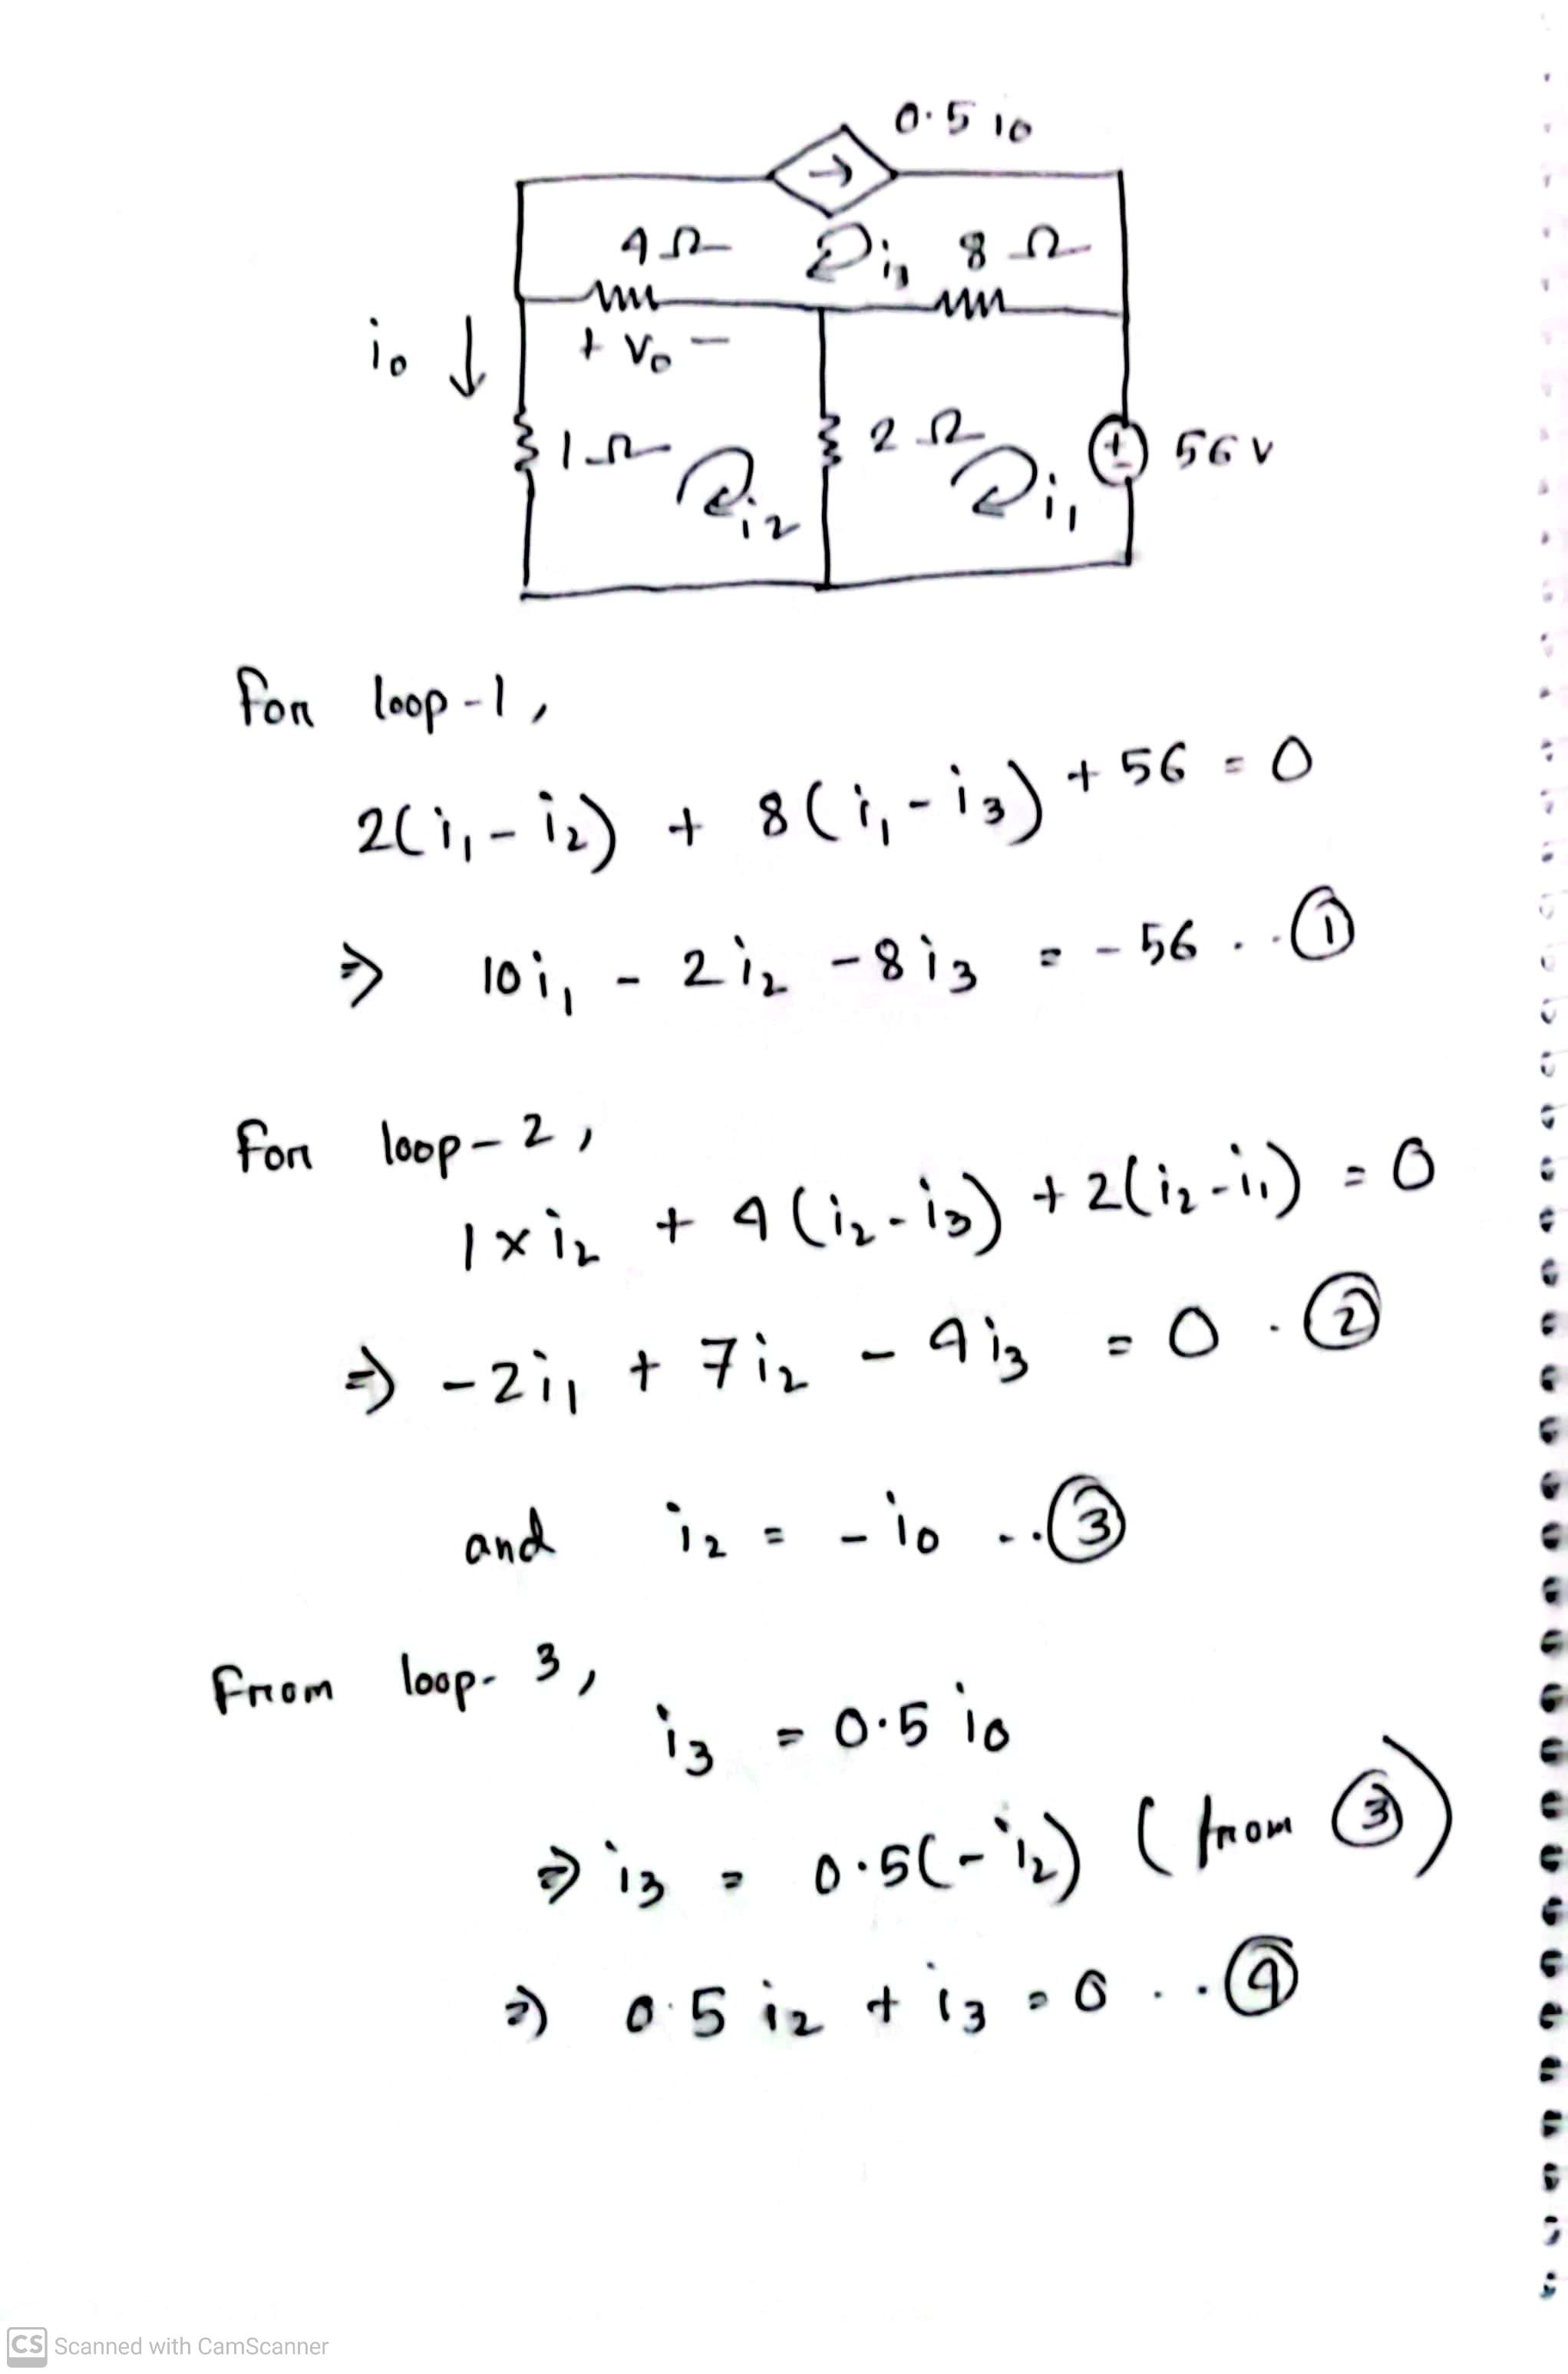 0.5 i0
4Ω
i3
8 Ω
i0 ↓
+ V0 −
1Ω
2Ω
+
−
56 V
i2
i1
For loop-1,
2(i₁ - i₂) + 8(i₁ - i₃) + 56 = 0
⇒ 10i₁ - 2i₂ - 8i₃ = -56 .. ①
For loop-2,
1 × i₂ + 4(i₂ - i₃) + 2(i₂ - i₁) = 0
⇒ -2i₁ + 7i₂ - 4i₃ = 0 . ②
and i₂ = -i₀ .. ③
From loop-3,
i₃ = 0.5 i₀
⇒ i₃ = 0.5(-i₂) (from ③)
⇒ 0.5 i₂ + i₃ = 0 .. ④
CS Scanned with CamScanner